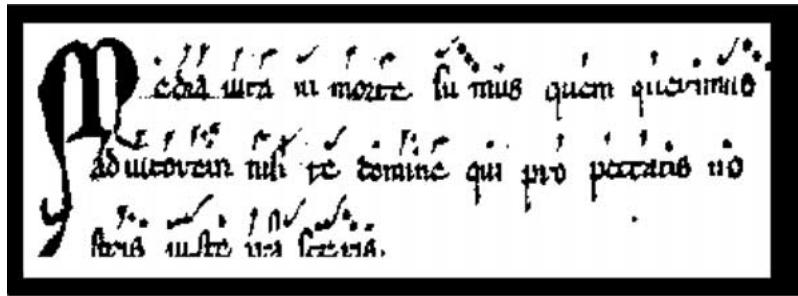 Media uita in morte su mus quem querimus
adiutorem nisi te domine qui pro peccatis no
stris iuste irasceris.